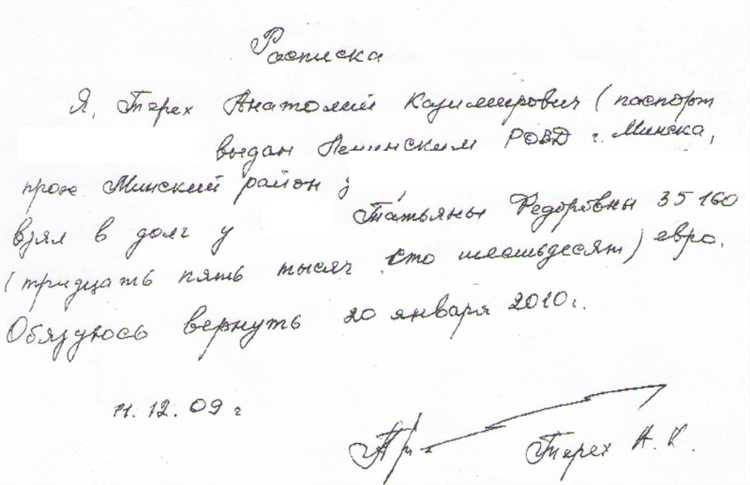 Расписка
Я, Терех Анатолий Казимирович (паспорт
выдан Ленинским РОВД г. Минска,
прож Минский район ;
взял в долг у Татьяны Федоровны 35 160
(тридцать пять тысяч сто шестьдесят) евро.
Обязуюсь вернуть 20 января 2010 г.
11.12.09 г
Терех А. К.